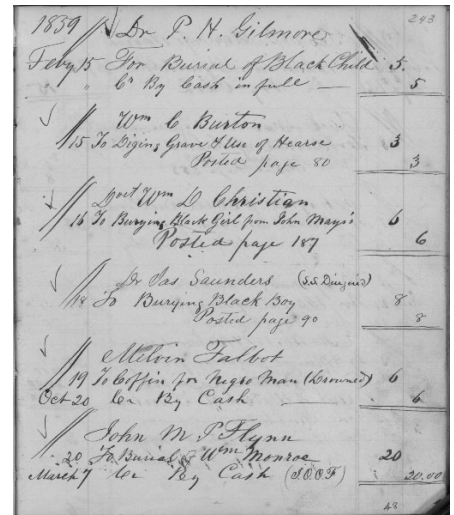 243
1859 Dr P. H. Gilmore
Feby 15 For Burial of Black Child 5.
Cr By Cash in full — 5
Wm C Burton
15 To Diging Grave & Use of Hearse 3
Posted page 80 3
Doct Wm D Christian
16 To Burying Black Girl from John Mays's 6
Posted page 187 6
Dr Jas Saunders
18 To Burying Black Boy 8
Posted page 90 8
Melvin Talbot
19 To Coffin for Negro Man (Drowned) 6
Oct 20 Cr By Cash — 6
John M P Flynn
20 To Burial of Wm Monroe 20
March 7 Cr By Cash (I.O.O.F) 20.00
48